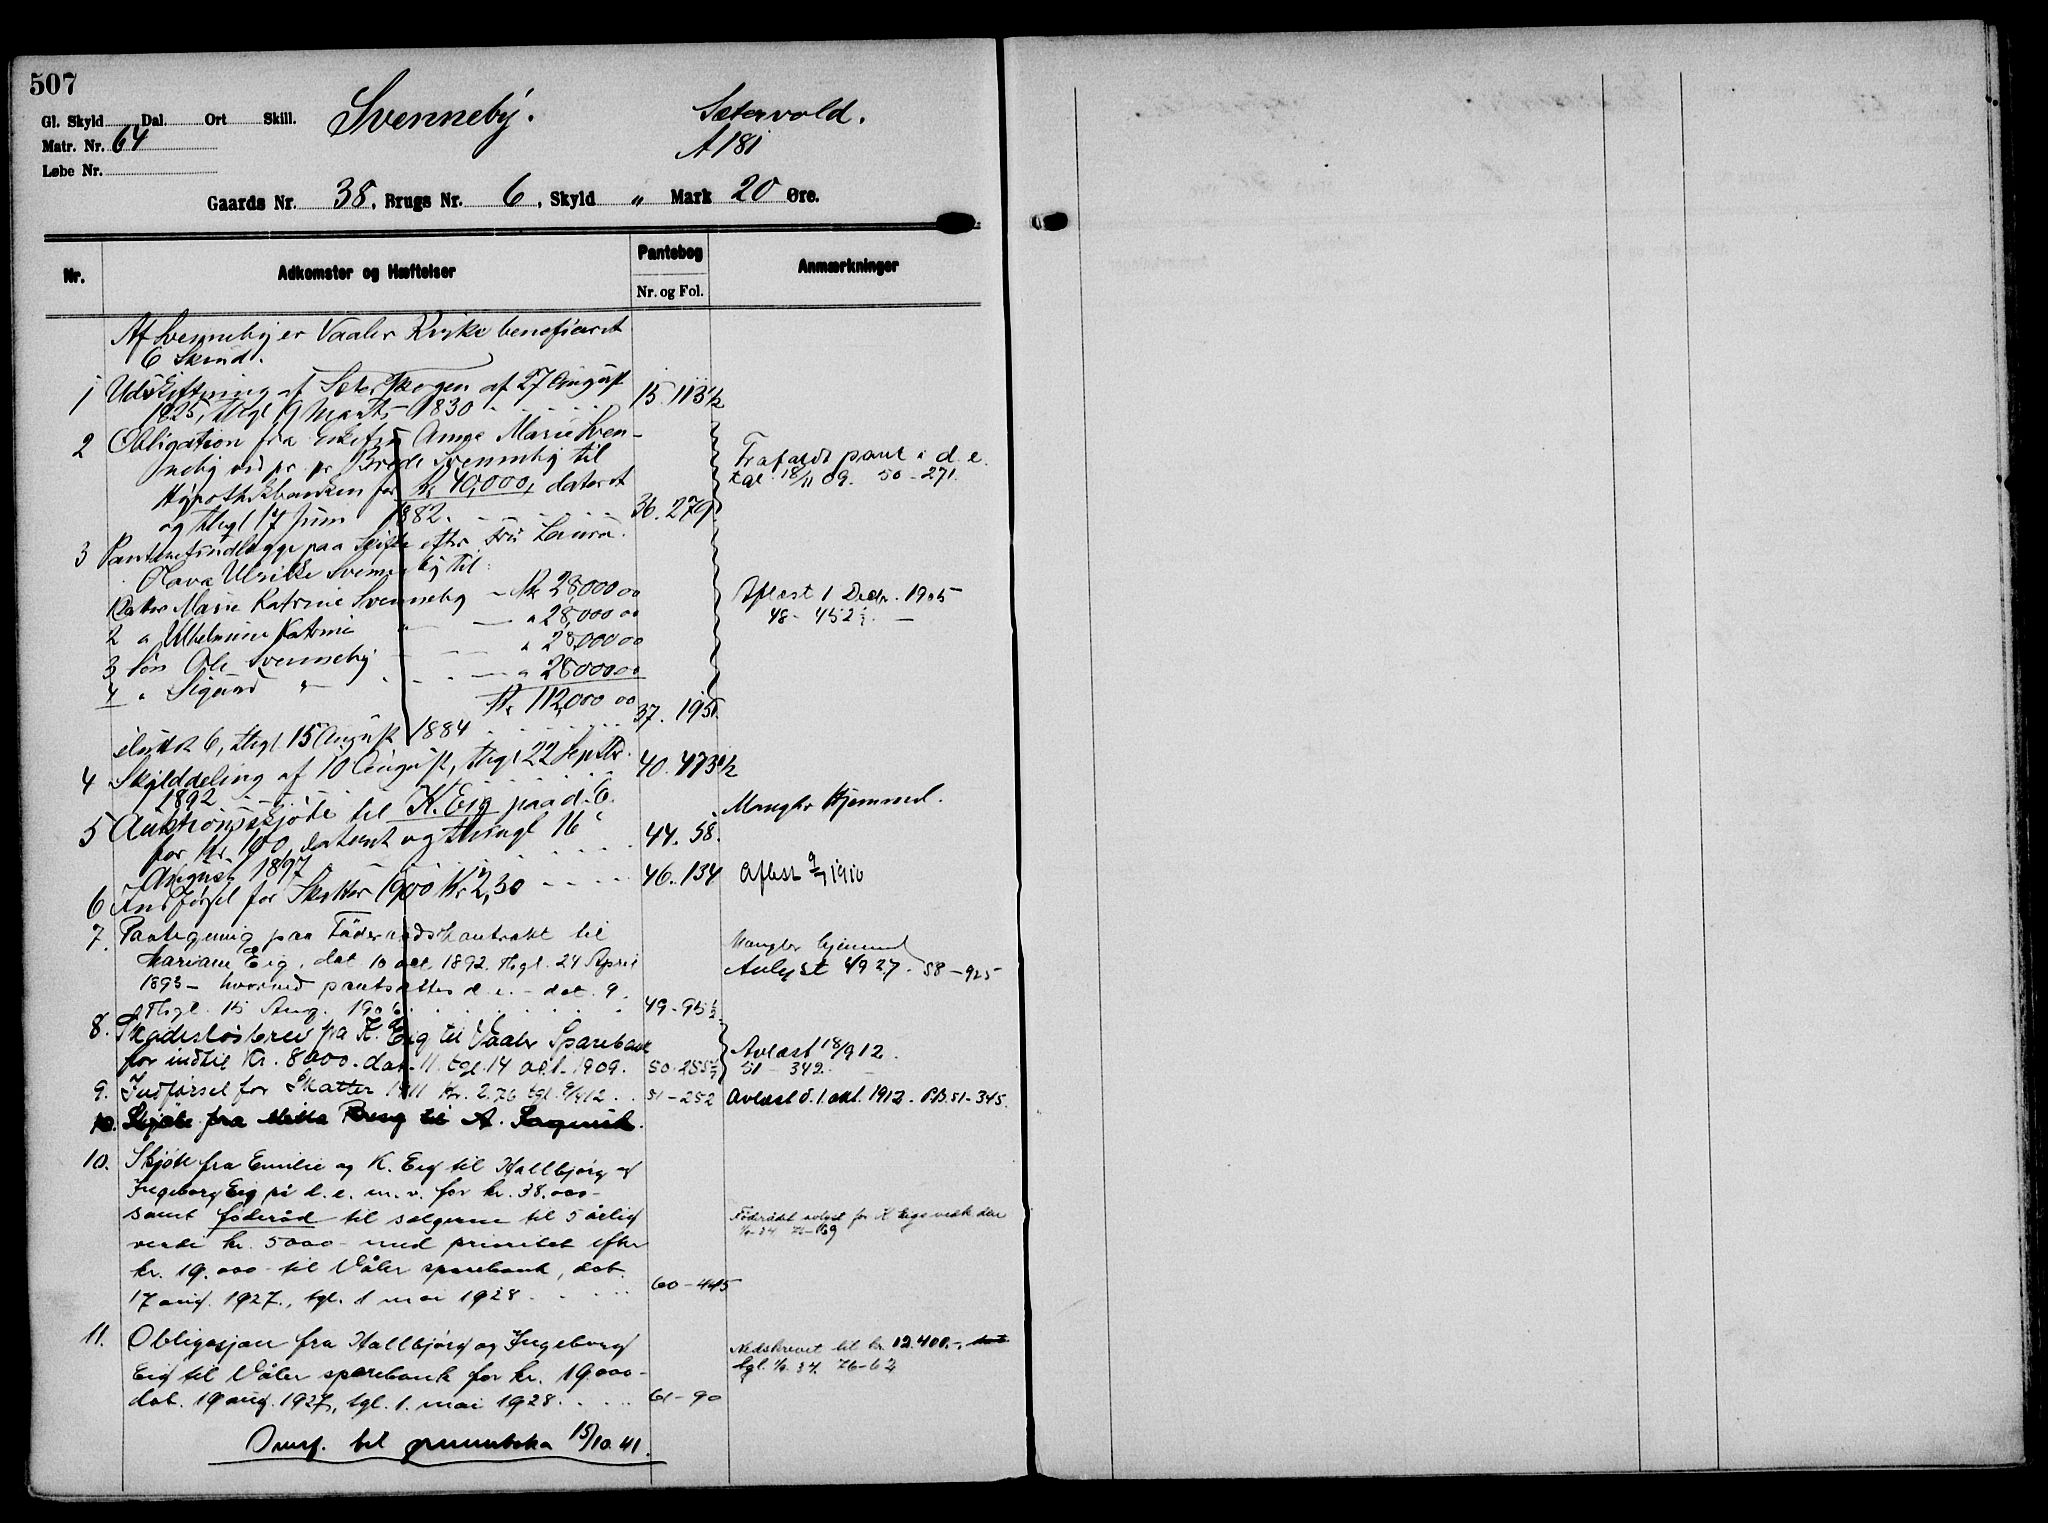 507
Gl. Skyld Dal. Ort Skill. Svenneby. Sætervold.
Matr. Nr. 64 A 181
Løbe Nr.
Gaards Nr. 38, Brugs Nr. 6, Skyld " Mark 20 Øre.
Nr. Adkomster og Hæftelser Pantebog Anmærkninger
Nr. og Fol.
Af Svenneby er Vaaler Kirke beneficeret
6 Skind.
1 Udskiftning af Sæterskogen af 27 August
1825, thgl 9 Marts 1830 15. 113 1/2
2 Obligation fra Enkefru Anne Marie Sven-
neby ved pr. pr. Brede Svenneby til
Hypothekbanken for Kr 40,000, dateret
og thgl 17 Juni 1882. 36. 279
Frafaldt pant i d. e.
tgl. 18/11 09. 50 - 271.
3 Panteudlægge paa Skifte efter Fru Laura
Olava Ulrikke Svenneby til:
Datter Marie Katrine Svenneby - Kr 28,000 00
2 " Vilhelmine Katrine " - " 28,000 00
3 Søn Ole Svenneby - - " 28,000 00
4 " Sigurd " - - " 28,000 00
Kr 112,000 00
sluttet 6, thgl. 15 August 1884 37. 195.
Aflæst 1 Decbr. 1905
48 - 452 1/2. -
4 Skylddeling af 10 August, thgl 22 Septbr.
1892 40. 473 1/2
5 Auktionsskjøte til K. Eig paa d. E.
for Kr. 100, dateret og thingl 16
August 1897 44. 58.
Mangler Hjemmel.
6 Indførsel for Skatter 1900 Kr 2,30 46. 134 Aflest 9/7 1910
7. Pantegjenig paa Föderaadskontrakt til
Mariane Eig, dat 10 oct 1892. thgl. 24 April
1893 - hvorved pantsættes d. e. - dat. 9,
thgl. 15 Aug. 1906 49 - 95 1/2
Mangler hjemmel
Avlyst 1/9 27. 58 - 925
8. Skadesløsbrev fra K. Eig til Vaaler Sparebank
for indtil Kr. 8000. dat. 11. tgl. 14 okt. 1909. 50. 255 1/2
Avlæst 18/9 12.
51 - 342.
9. Indførsel for Skatter 1911 Kr. 2.76 tgl. 9/4 12. 51 - 252 Avlæst d. 1. okt. 1912. P.B. 51 - 345.
10. Skjøte fra
10. Skjøte fra Emilie og K. Eig til Hallbjørg og
Ingeborg Eig på d. e. m. v. for kr. 38.000 -
samt føderåd til selgerne til 5 årlig
verdi kr. 5000 - med prioritet efter
kr. 19.000 - til Våler sparebank, dat.
17 aug. 1927., tgl. 1 mai 1928 60 - 445
Føderådet avlyst for K Eigs vedk. den
1/6 - 34 76 - 69
11. Obligasjon fra Hallbjørg og Ingeborg
Eig til Våler sparebank for kr. 19.000 -
dat. 19 aug. 1927, tgl. 1. mai 1928. 61 - 90
Nedskrevet til kr. 12.400. -,
tgl. 1/6. 34. 76 - 62
Overf. til grunnboka 15/10. 41.